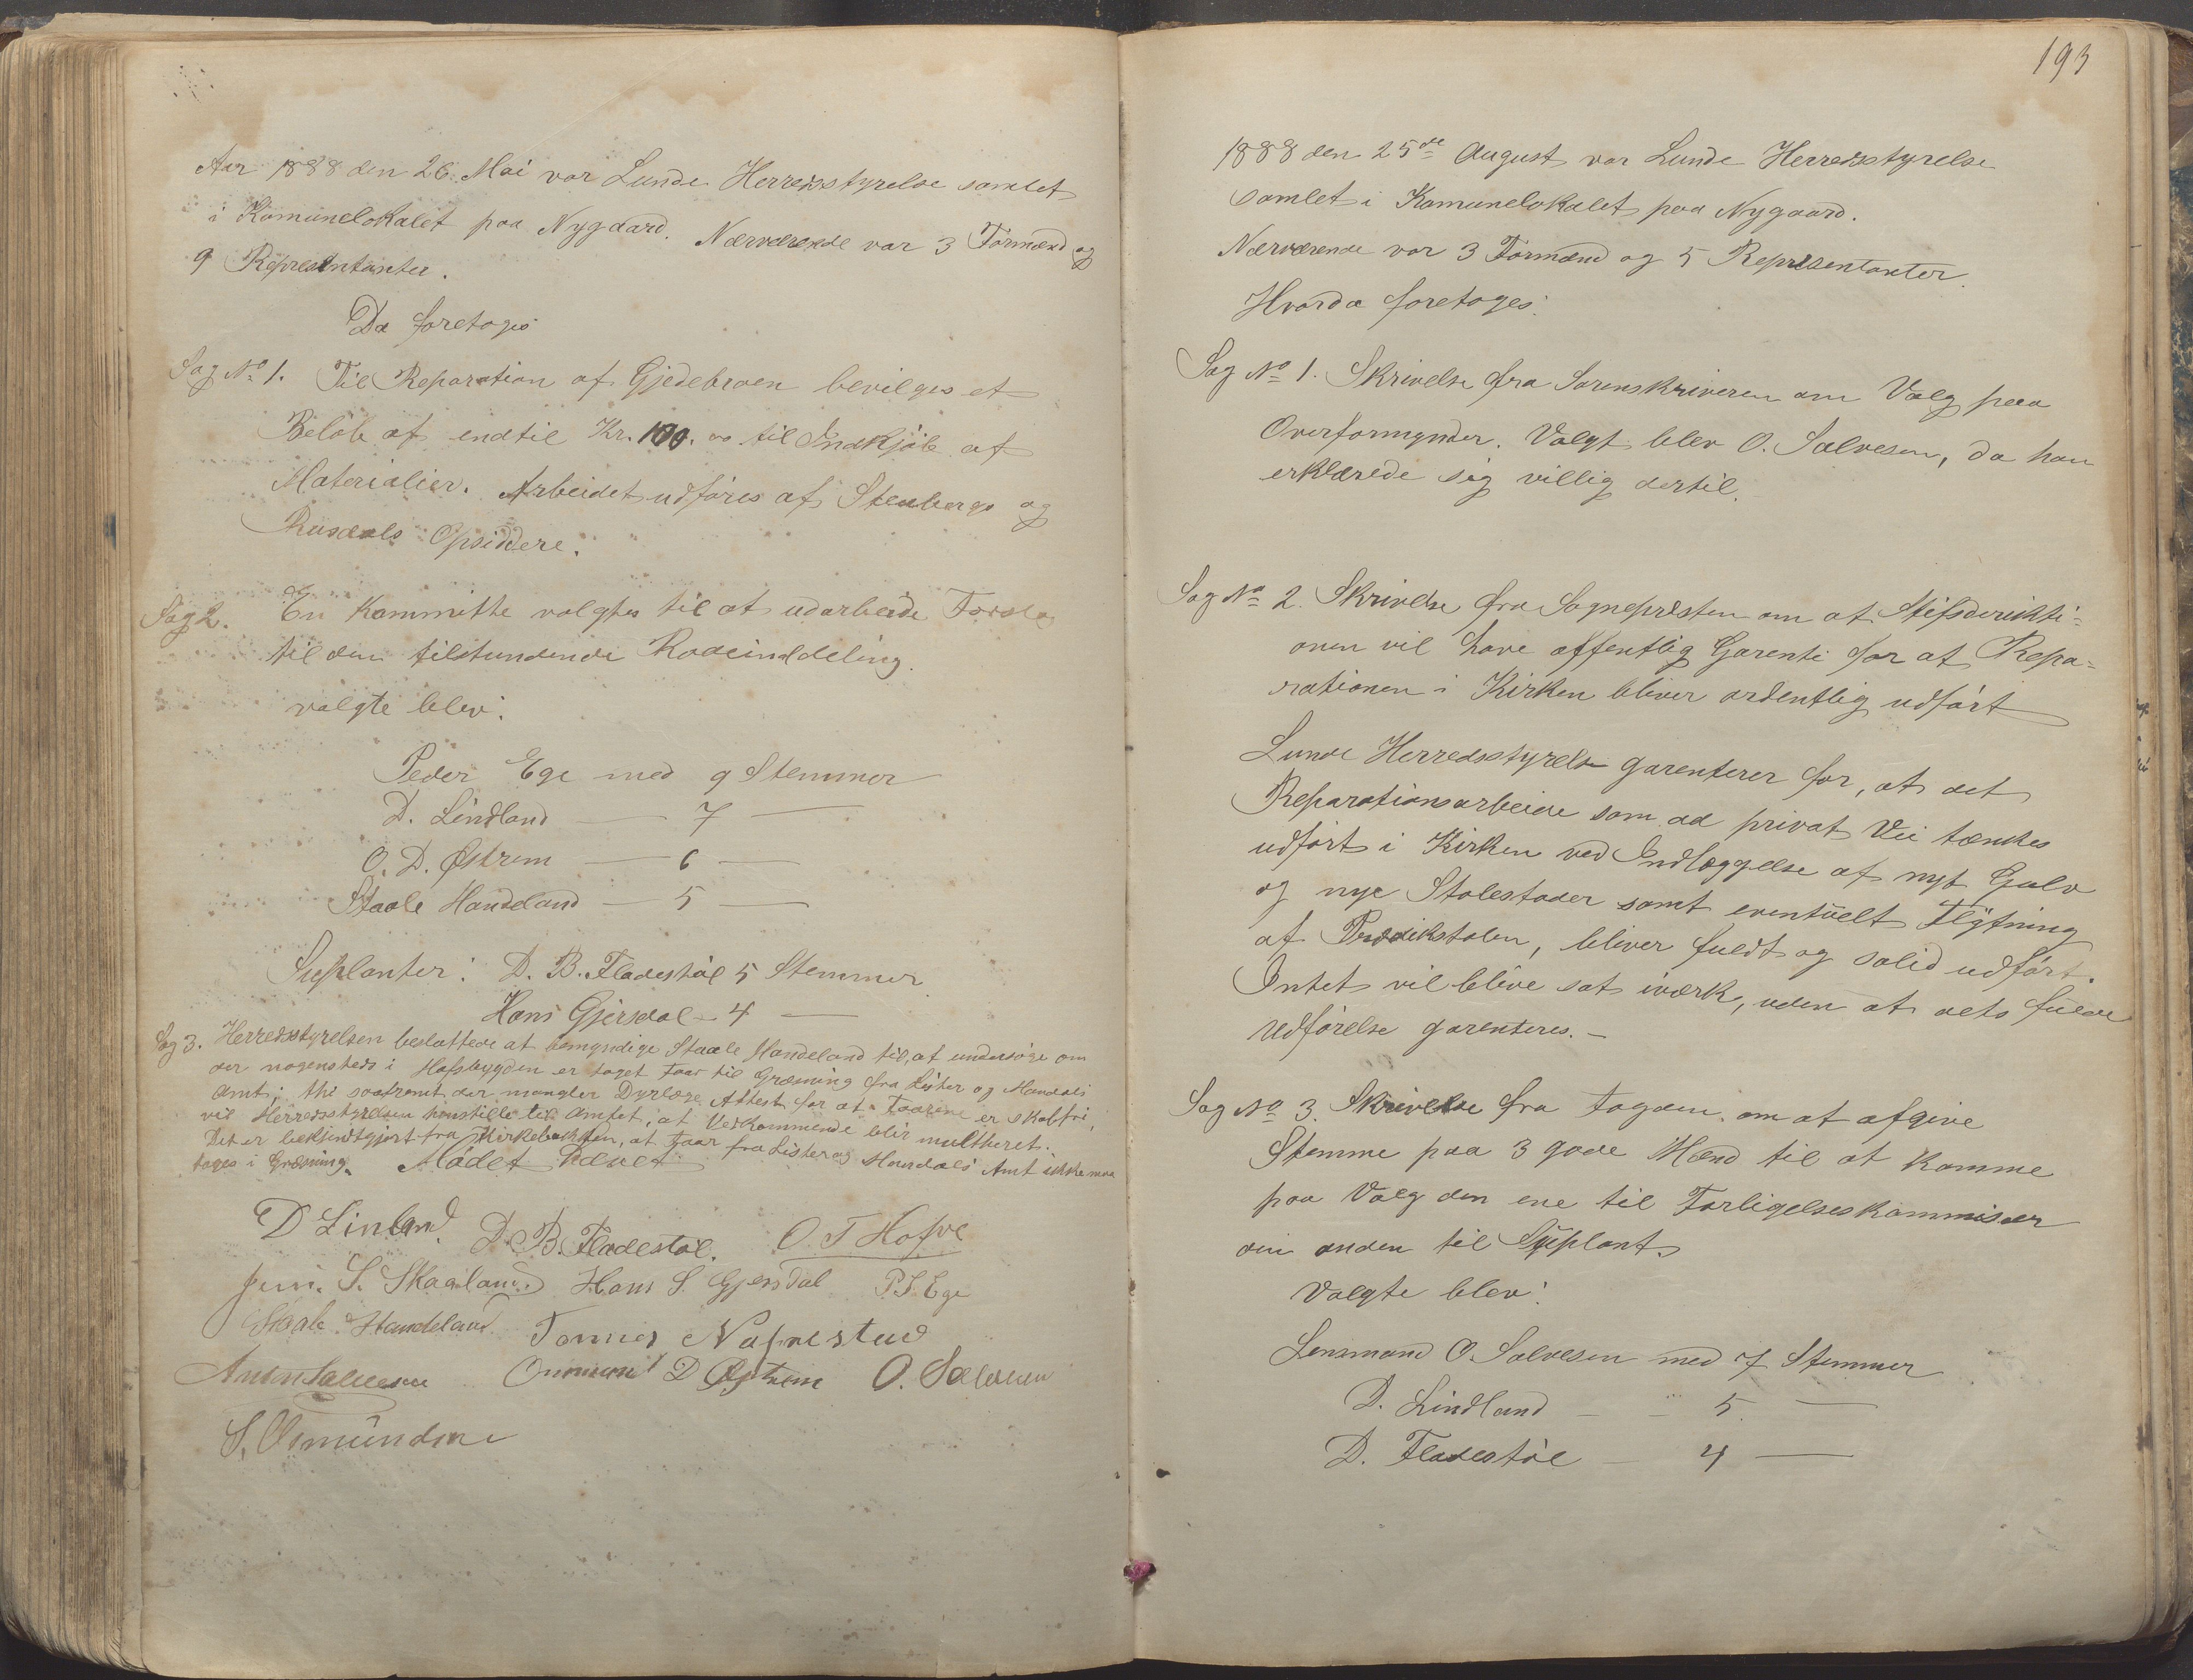 Aar 1888 den 26. Mai var Lunde Herredsstyrelse samlet
i Komunelokalet paa Nygaard. Nærværende var 3 Formænd og
9 Representanter.
Da foretoges
Sag No 1. Til Reparation af Gjedebroen bevilges et
Beløb af indtil Kr. 100.00 til Indkjøb af
Materialier. Arbeidet udføres af Stenbergs og
Rusdals Opsiddere.
Sag 2. En Kommitte valgtes til at udarbeide Forslag
til den tilstundende Rodeinddeling.
valgte blev:
Peder Ege med 9 Stemmer
D. Lindland — 7 —
O. D. Østrem — 6 —
Staale Handeland — 5 —
Suplanter: D. B. Fladestøl 5 Stemmer
Hans Gjersdal — 4 —
Sag 3. Herredsstyrelsen besluttede at bemyndige Staale Handeland til, at undersøge om
der nogensteds i Hofsbygden er taget Faar til Græsning fra Lister og Mandals
Amt; thi saaframt der mangler Dyrlæge Attest for at Faarene er skabfri,
vil Herredsstyrelsen henstille til Amtet, at Vedkommende blir multheret.
Det er bekjendtgjort fra Kirkebakken, at Faar fra Lister og Mandals Amt ikke maa
tages i Græsning. Mødet hævet
D Linland. D. B. Fladestøl. O. T Hofve
S. Skaaland. Hans S. Gjersdal P. S. Ege
Staale Handeland. Tønnes Nafnestad
Anton Salvesen Ommund D Østrem O. Salvesen
S. Osmundsen
193
1888 den 25de August var Lunde Herredsstyrelse
samlet i Komunelokalet paa Nygaard.
Nærværende var 3 Formænd og 5 Representanter.
Hvorda foretoges:
Sag No 1. Skrivelse fra Sorenskriveren om Valg paa
Overformynder. Valgt blev O. Salvesen, da han
erklærede sig villig dertil.
Sag No 2. Skrivelse fra Sognepresten om at Stifsderikti=
onen vil have offentlig Garenti for at Repa=
rationen i Kirken bliver ordentlig udført
Lunde Herredsstyrelse garenterer for, at det
Reparationsarbeide som ad privat Vei tænkes
udført i Kirken ved Indlæggelse af nyt Gulv
og nye Stolestader samt eventuelt Flytning
af Prædikstolen, bliver fuldt og solid udført.
Intet vil blive sat iværk, uden at dets fulde
Udførelse garenteres. —
Sag No 3. Skrivelse fra Fogden om at afgive
Stemme paa 3 gode Mænd til at komme
paa Valg den ene til Forligelseskommisær
den anden til Suplant.
Valgte blev:
Lensmand O. Salvesen med 7 Stemmer
D. Lindland — — 5 —
D. Fladestøl — 4 —